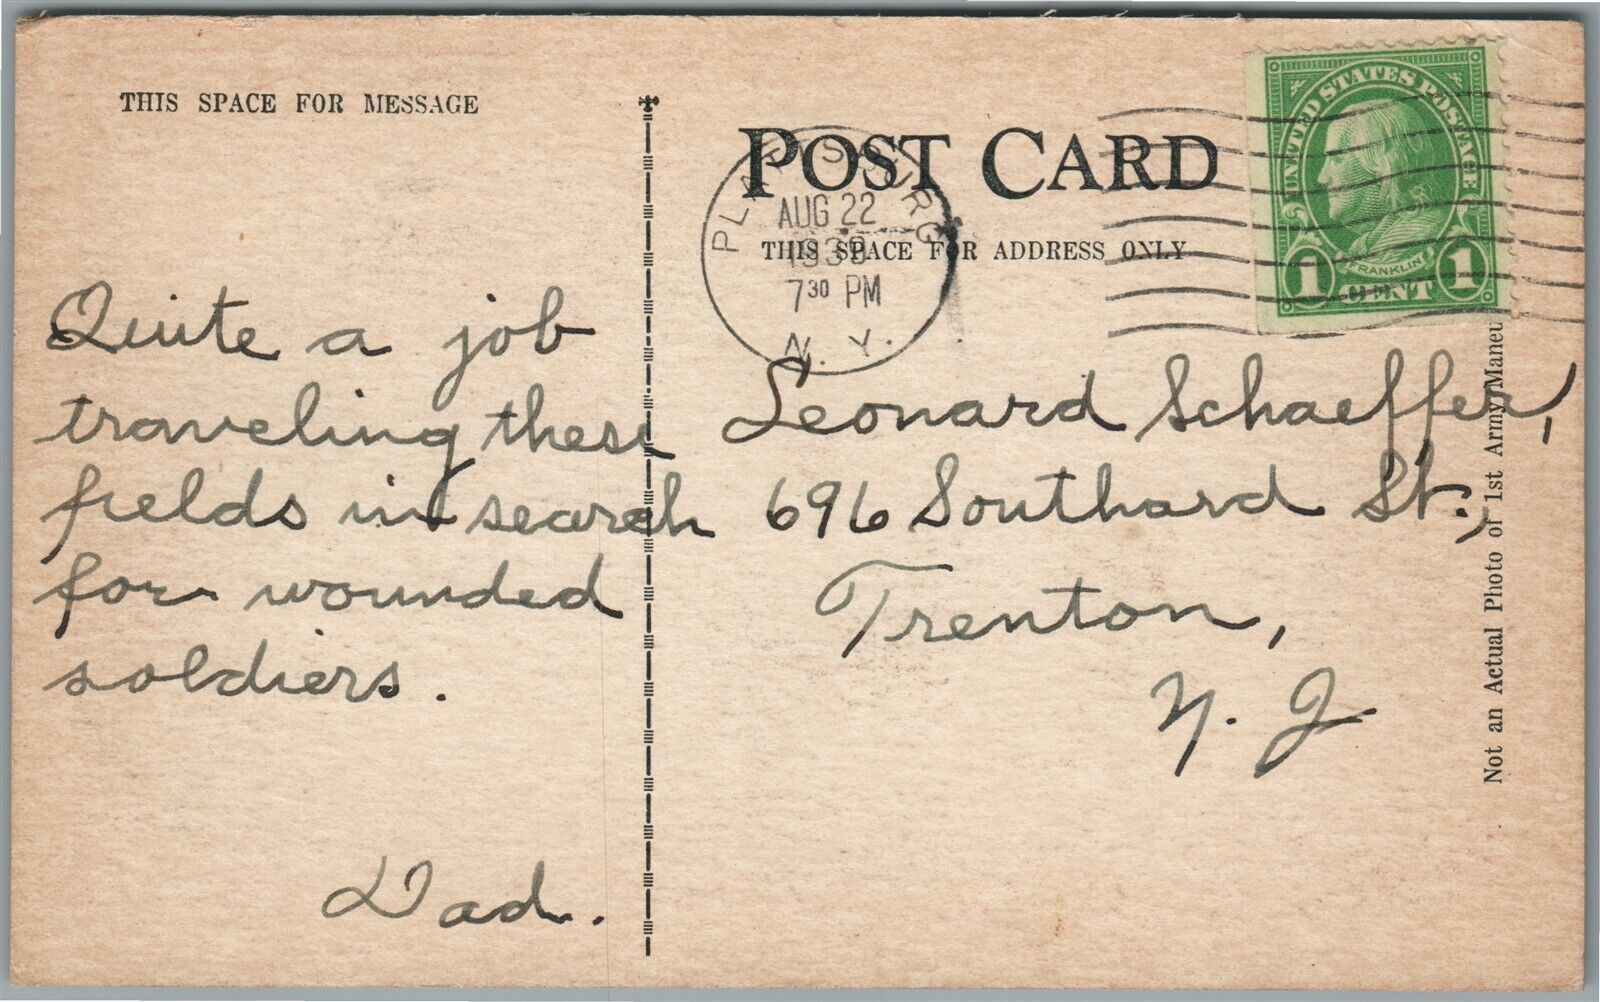 THIS SPACE FOR MESSAGE
Quite a job
traveling these
fields in search
for wounded
soldiers.
Dad.
POST CARD
THIS SPACE FOR ADDRESS ONLY
PLATTSBURG
AUG 22
7 30 PM
N. Y.
UNITED STATES POSTAGE
FRANKLIN
1 CENT 1
Leonard Schaeffer,
696 Southard St.,
Trenton,
N. J.
Not an Actual Photo of 1st Army Maneu